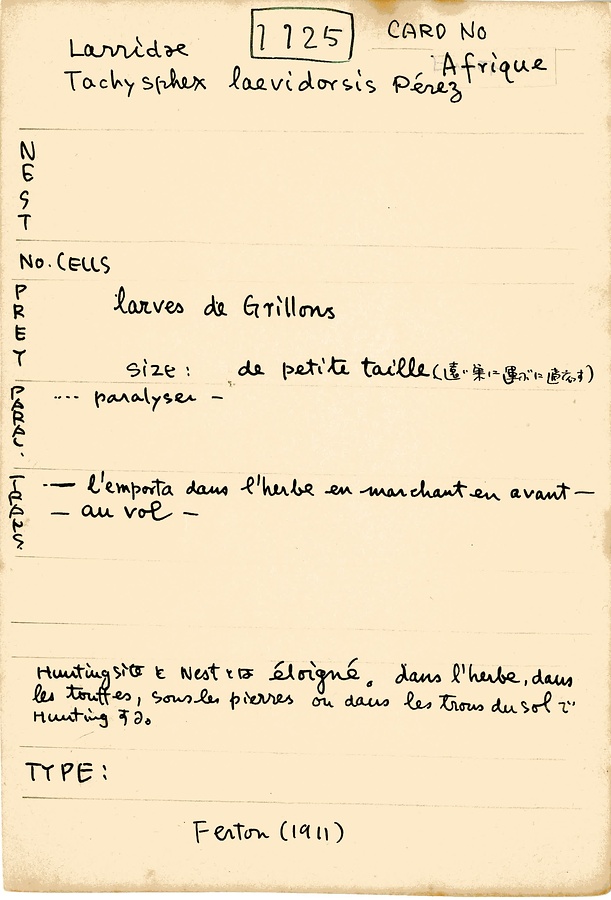 1125 CARD No
Larridae Afrique
Tachysphex laevidorsis Pérez
NEST
No. CELLS
PREY larves de Grillons
size: de petite taille (遠い巣に運ぶに適す)
PARAL. ---- paralyser –
TRANS. -— l'emporta dans l'herbe en marchant en avant —
— au vol —
Hunting site と Nest とは éloigné。 dans l'herbe, dans
les touffes, sous les pierres ou dans les trous du sol で
Hunting する。
TYPE:
Ferton (1911)